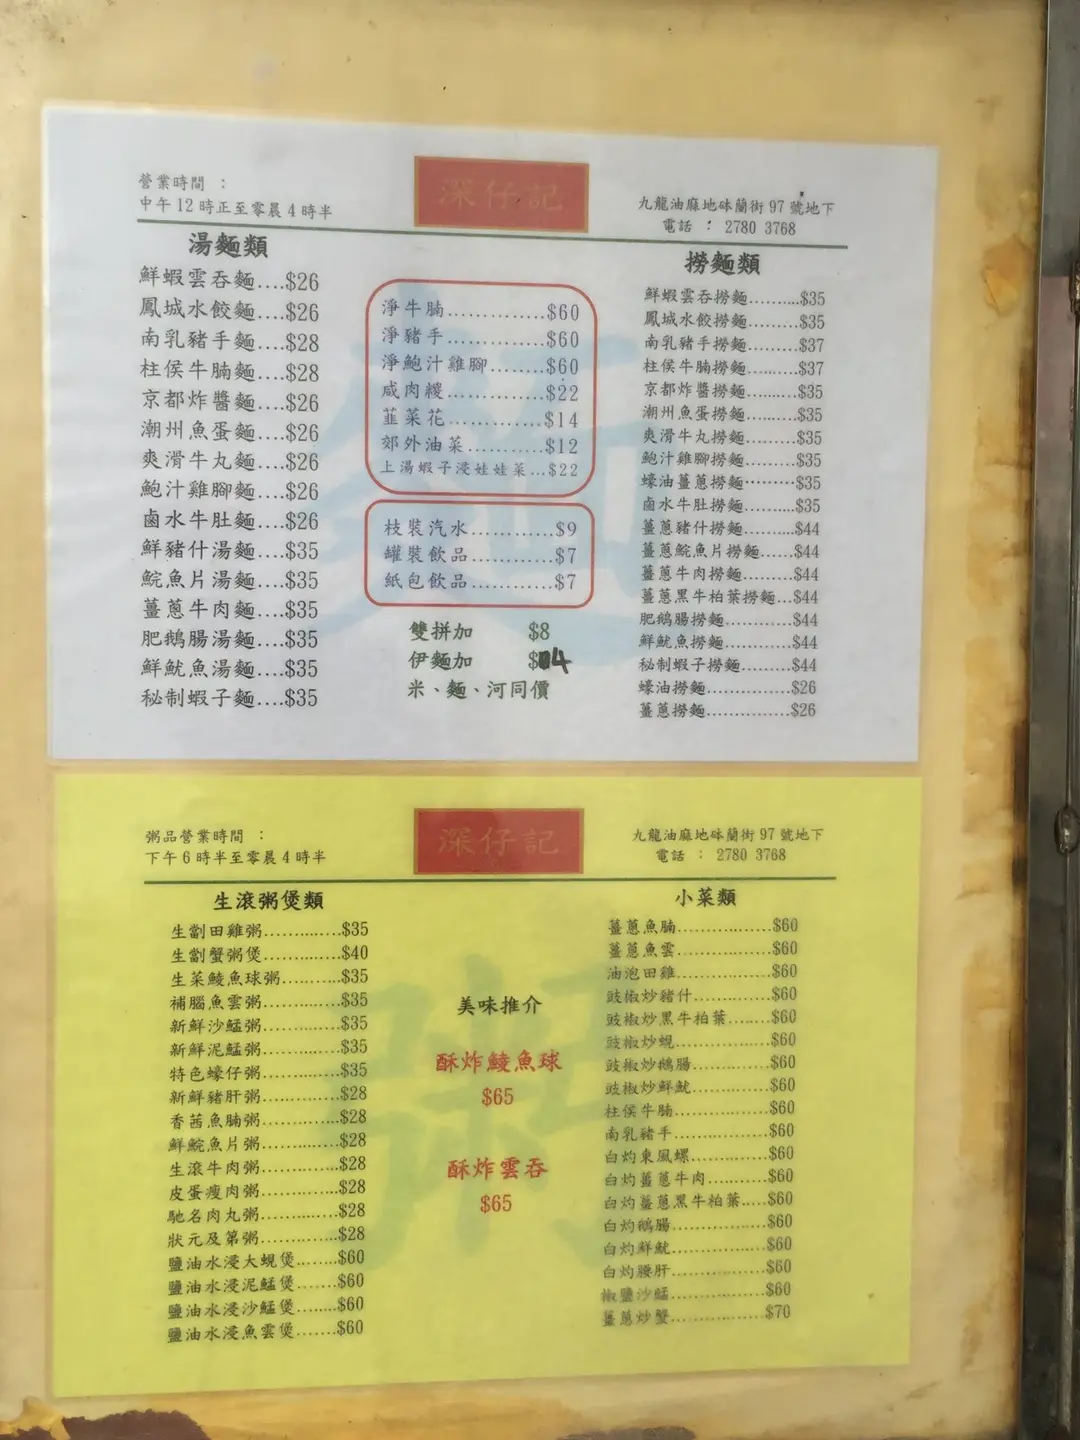 營業時間 ：
中午12時正至零晨4時半
深仔記
九龍油麻地砵蘭街97號地下
電話 ： 2780 3768
湯麵類
鮮蝦雲吞麵....$26
鳳城水餃麵....$26
南乳豬手麵....$28
柱侯牛腩麵....$28
京都炸醬麵....$26
潮州魚蛋麵....$26
爽滑牛丸麵....$26
鮑汁雞腳麵....$26
鹵水牛肚麵....$26
鮮豬什湯麵....$35
鯇魚片湯麵....$35
薑蔥牛肉麵....$35
肥鵝腸湯麵....$35
鮮魷魚湯麵....$35
秘制蝦子麵....$35
淨牛腩..............$60
淨豬手..............$60
淨鮑汁雞腳........$60
咸肉糉..............$22
韮菜花..............$14
郊外油菜............$12
上湯蝦子浸娃娃菜...$22
枝裝汽水............$9
罐裝飲品............$7
紙包飲品............$7
雙拼加 $8
伊麵加 $14
米、麵、河同價
撈麵類
鮮蝦雲吞撈麵..........$35
鳳城水餃撈麵.........$35
南乳豬手撈麵.........$37
柱侯牛腩撈麵.........$37
京都炸醬撈麵..........$35
潮州魚蛋撈麵..........$35
爽滑牛丸撈麵..........$35
鮑汁雞腳撈麵..........$35
蠔油薑蔥撈麵·········$35
鹵水牛肚撈麵..........$35
薑蔥豬什撈麵..........$44
薑蔥鯇魚片撈麵......$44
薑蔥牛肉撈麵..........$44
薑蔥黑牛柏葉撈麵...$44
肥鵝腸撈麵.............$44
鮮魷魚撈麵.............$44
秘制蝦子撈麵..........$44
蠔油撈麵................$26
薑蔥撈麵................$26
粥品營業時間 ：
下午6時半至零晨4時半
深仔記
九龍油麻地砵蘭街97號地下
電話 ： 2780 3768
生滾粥煲類
生劏田雞粥..............$35
生劏蟹粥煲..............$40
生菜鯪魚球粥..........$35
補腦魚雲粥..............$35
新鮮沙鯭粥..............$35
新鮮泥鯭粥..............$35
特色蠔仔粥..............$35
新鮮豬肝粥..............$28
香茜魚腩粥..............$28
鮮鯇魚片粥..............$28
生滾牛肉粥..............$28
皮蛋瘦肉粥..............$28
馳名肉丸粥..............$28
狀元及第粥..............$28
鹽油水浸大蜆煲.......$60
鹽油水浸泥鯭煲.......$60
鹽油水浸沙鯭煲.......$60
鹽油水浸魚雲煲.......$60
美味推介
酥炸鯪魚球
$65
酥炸雲吞
$65
小菜類
薑蔥魚腩.................$60
薑蔥魚雲.................$60
油泡田雞.................$60
豉椒炒豬什..............$60
豉椒炒黑牛柏葉.......$60
豉椒炒蜆.................$60
豉椒炒鵝腸..............$60
豉椒炒鮮魷..............$60
柱侯牛腩.................$60
南乳豬手.................$60
白灼東風螺..............$60
白灼薑蔥牛肉..........$60
白灼薑蔥黑牛柏葉....$60
白灼鵝腸.................$60
白灼鮮魷.................$60
白灼腰肝.................$60
椒鹽沙鯭.................$60
薑蔥炒蟹.................$70